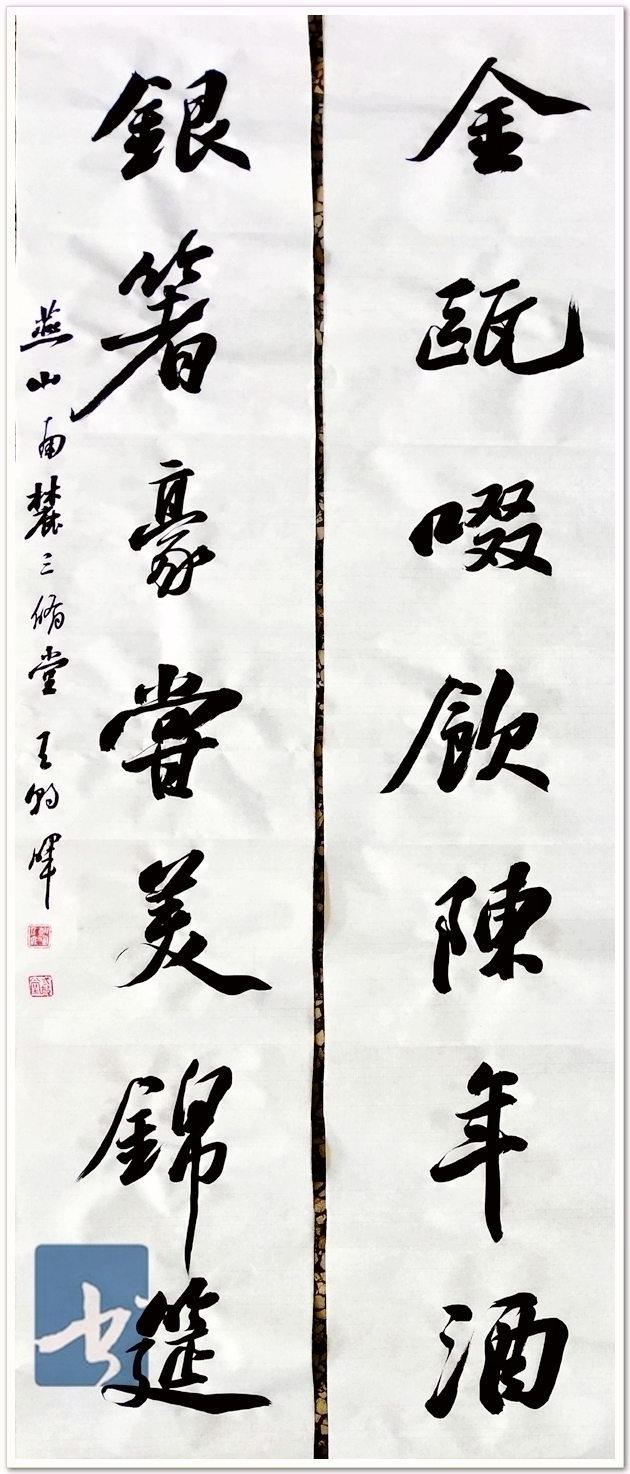 金甌啜飲陳年酒
銀箸豪嘗美錦筵
燕山南麓三脩堂 王朝暉
书